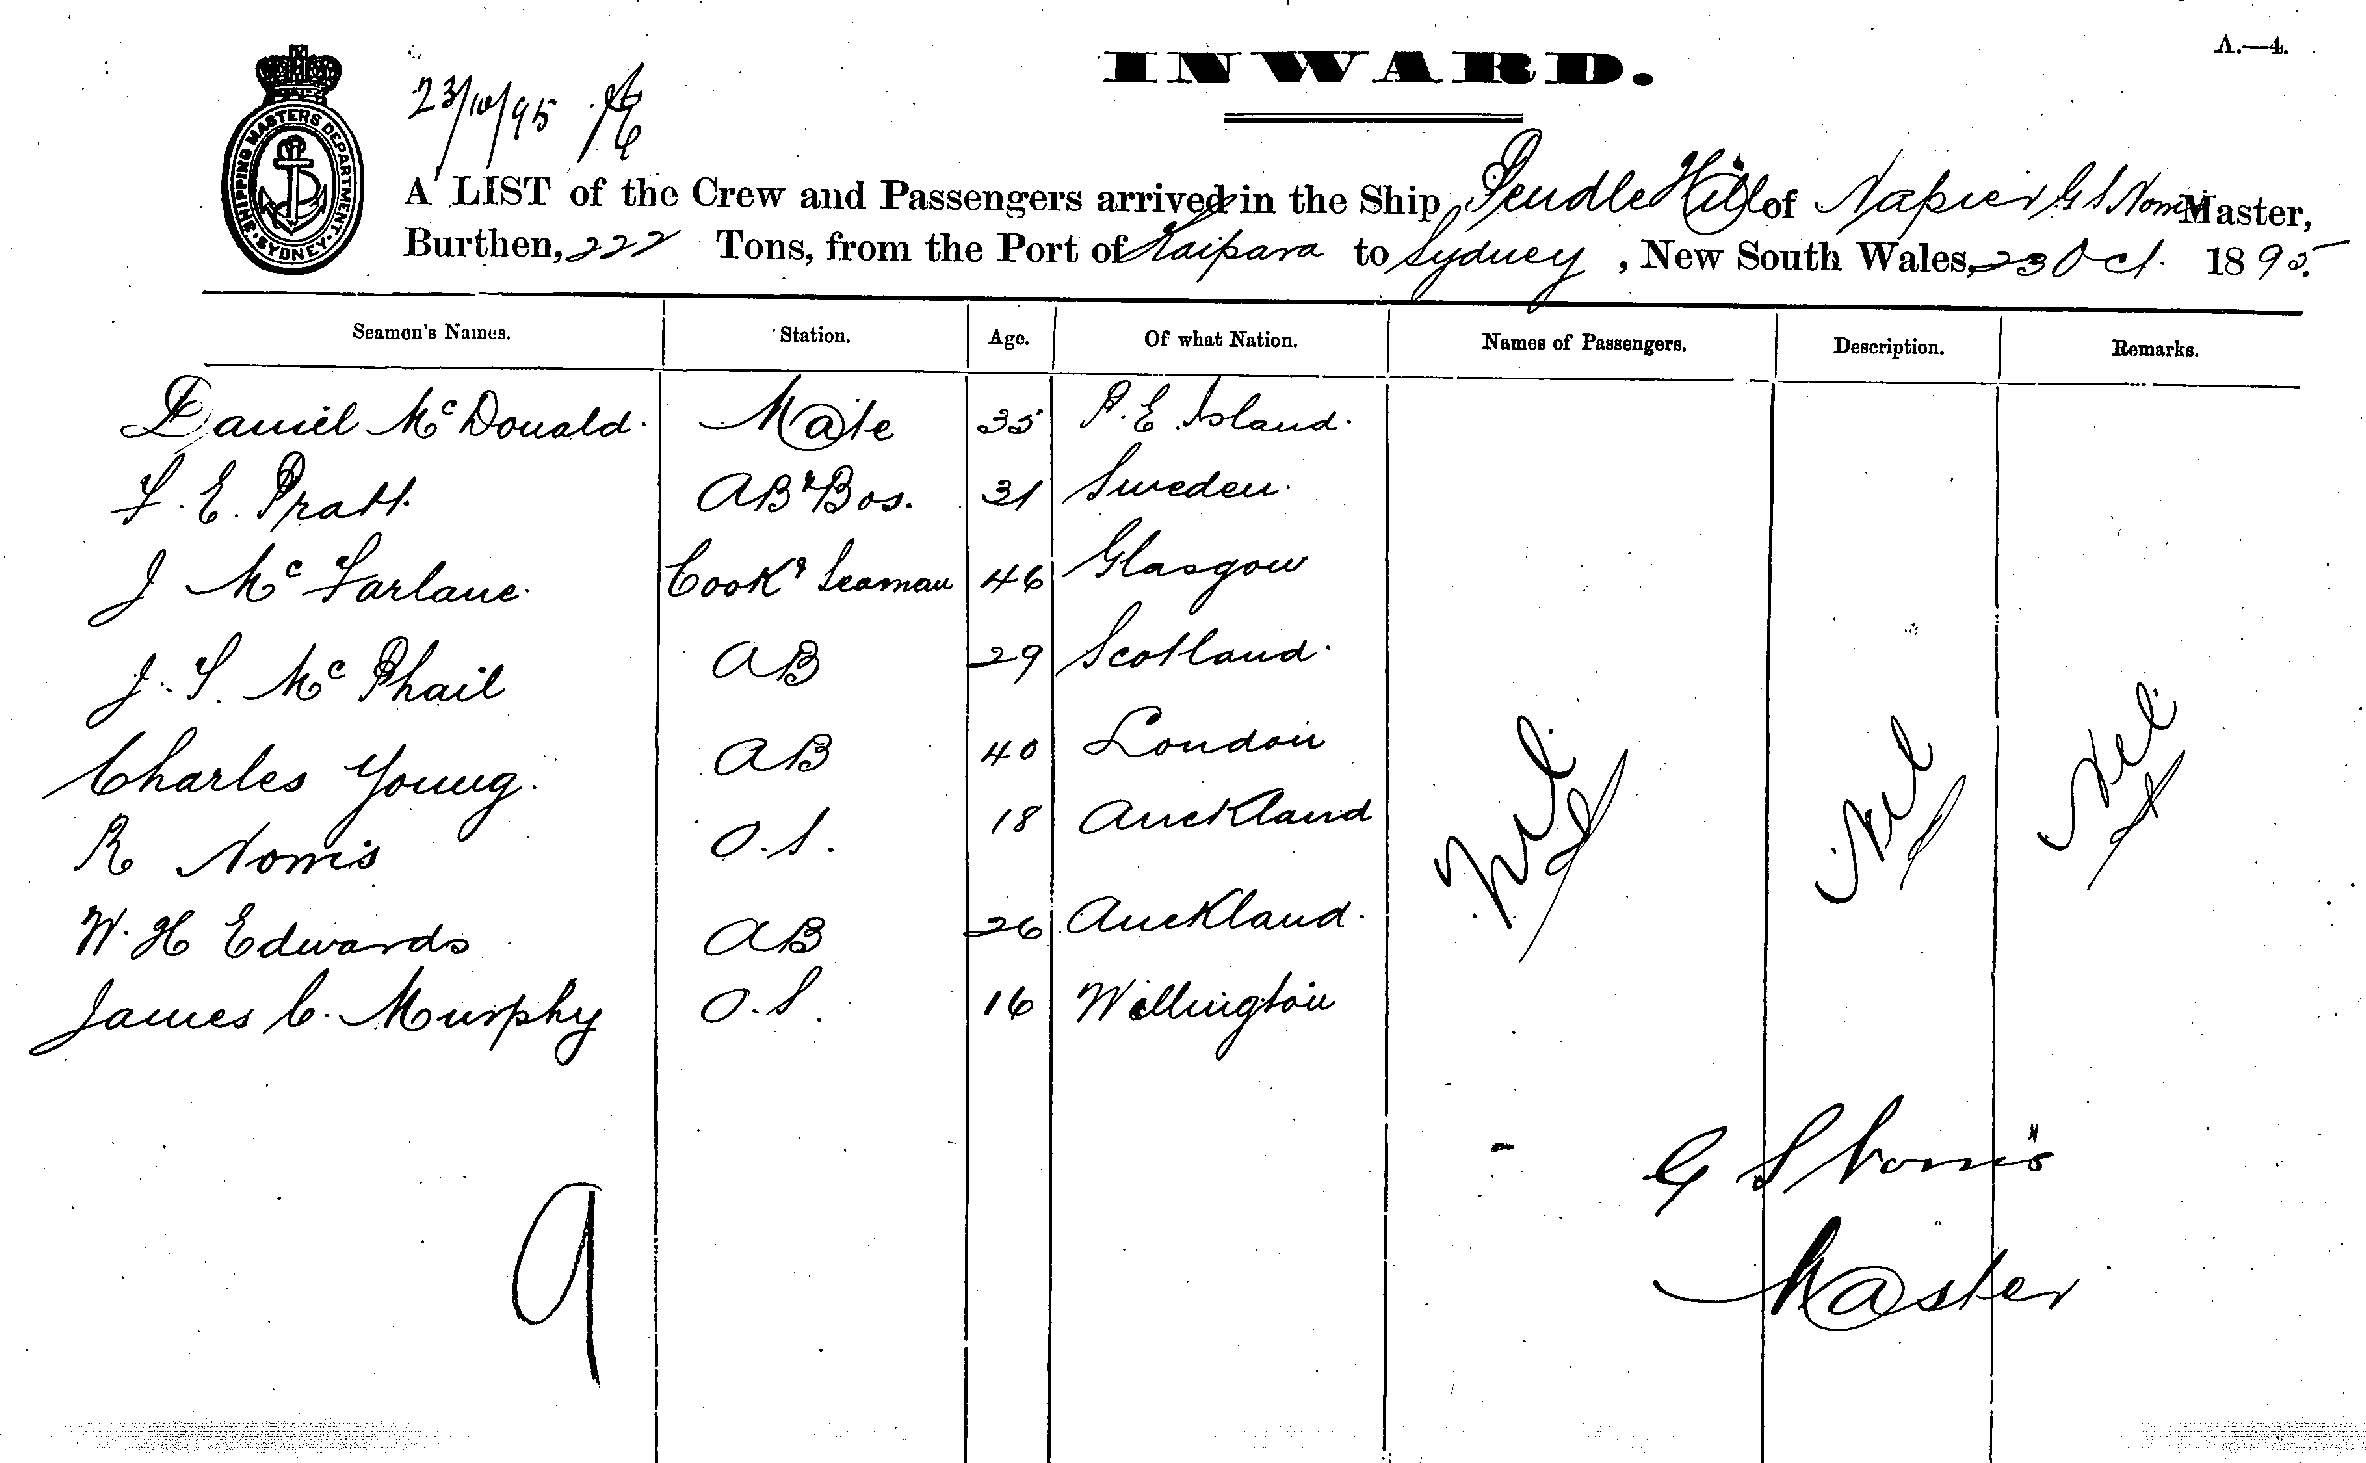 A.—4.
INWARD.
SHIPPING MASTERS DEPARTMENT. SYDNEY.
23/10/95
A LIST of the Crew and Passengers arrived in the Ship Pendle Hill of Napier G S Norris Master,
Burthen, 222 Tons, from the Port of Kaipara to Sydney, New South Wales, 23 Oct. 1895.
Seamen's Names. Station. Age. Of what Nation. Names of Passengers. Description. Remarks.
Daniel McDonald. Mate 35 P. E. Island.
F. E. Pratt. AB & Bos. 31 Sweden.
J McFarlane. Cook & Seaman 46 Glasgow
J. S. McPhail AB 29 Scotland.
Charles Young. AB 40 London
R Norris O.S. 18 Auckland
W. H Edwards AB 26 Auckland.
James C. Murphy O.S. 16 Wellington
Nil. Nil Nil.
G S Norris
Master
9